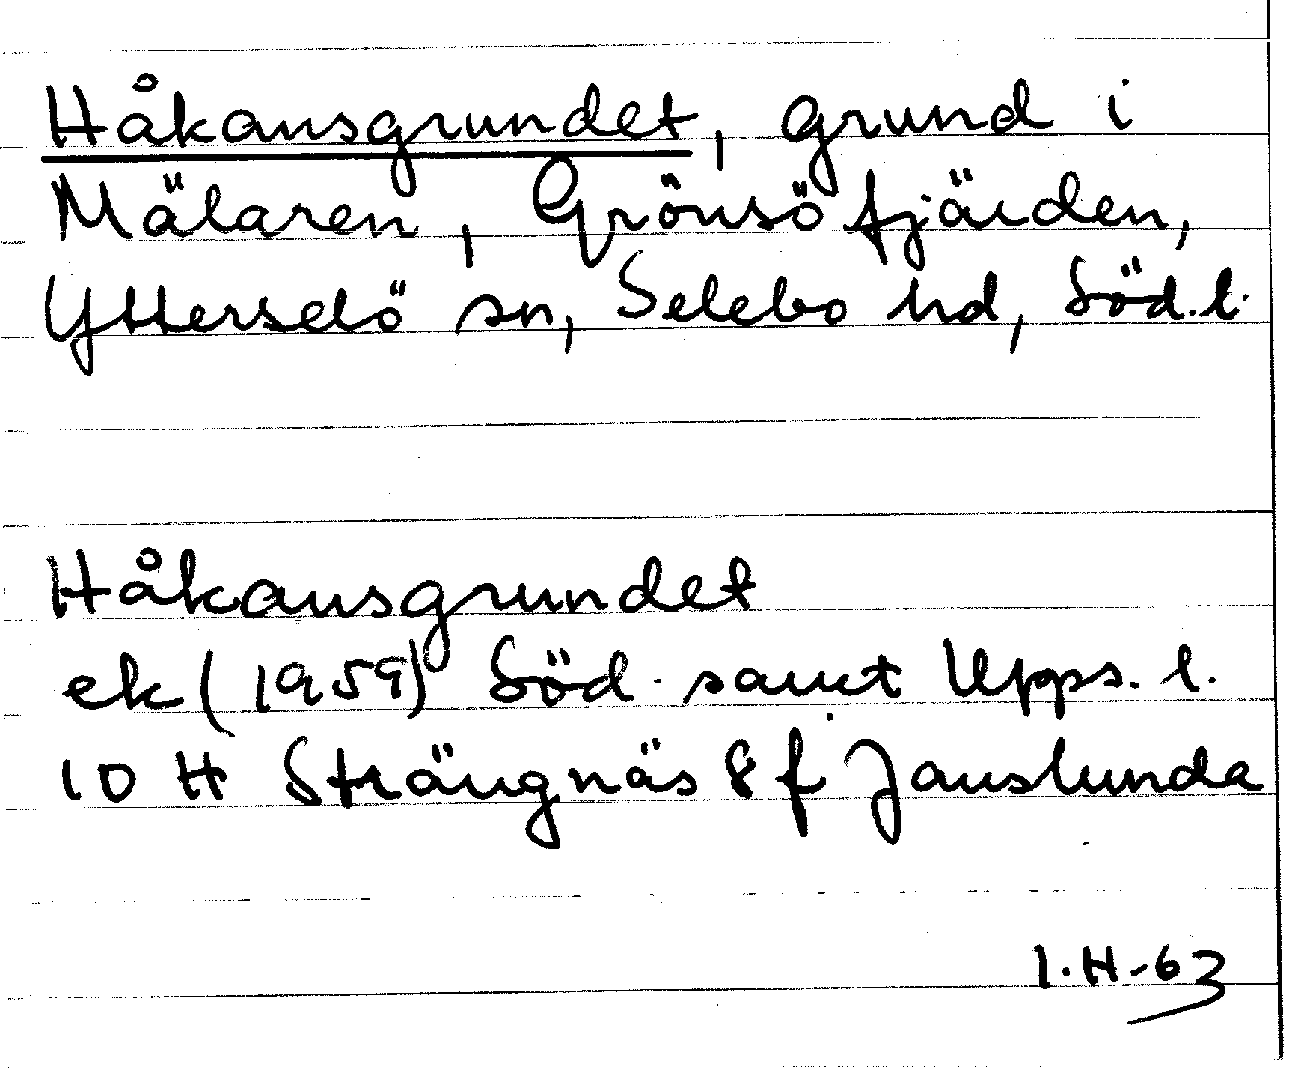 Håkansgrundet, grund i
Mälaren, Grönsöfjärden,
Ytterselö sn, Selebo hd, Söd.l.
Håkansgrundet
ek (1959) Söd. samt Upps. l.
10 H Strängnäs 8 f Janslunda
I.H-63